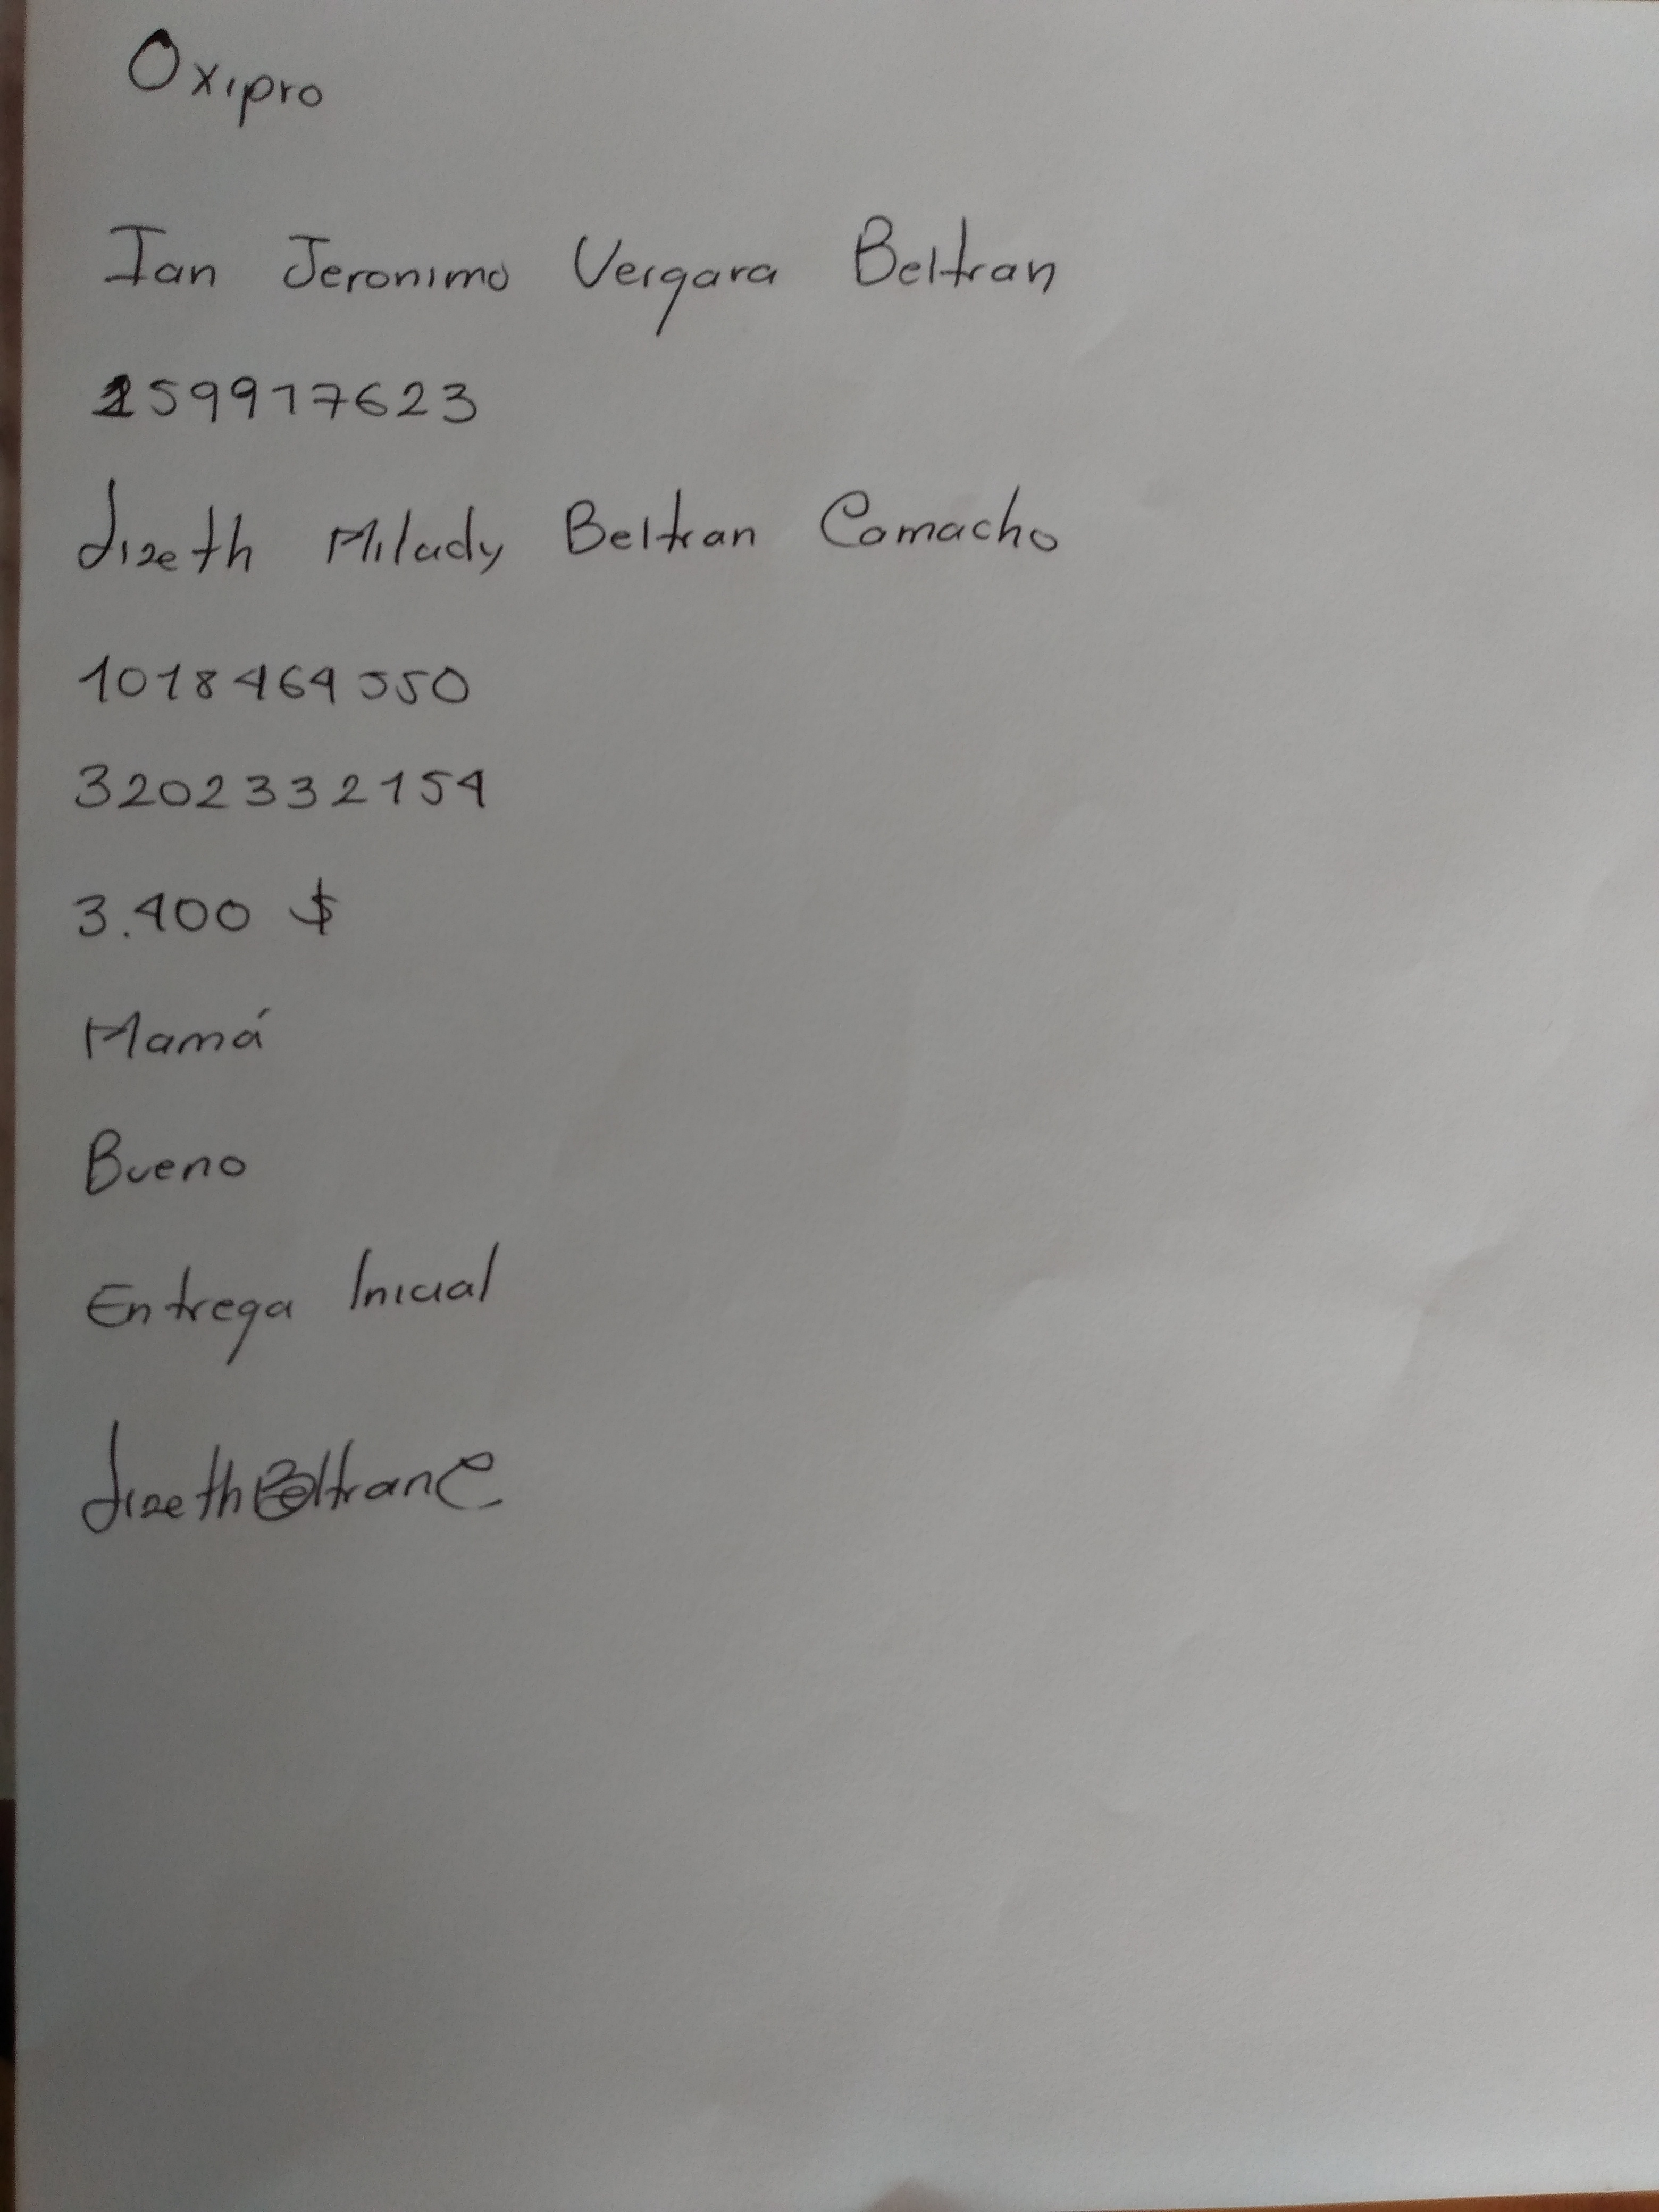 Oxipro
Ian Jeronimo Vergara Beltran
159917623
Lizeth Milady Beltran Camacho
1018464550
3202332154
3.400 $
Mamá
Bueno
Entrega Inicial
Lizeth Beltran C